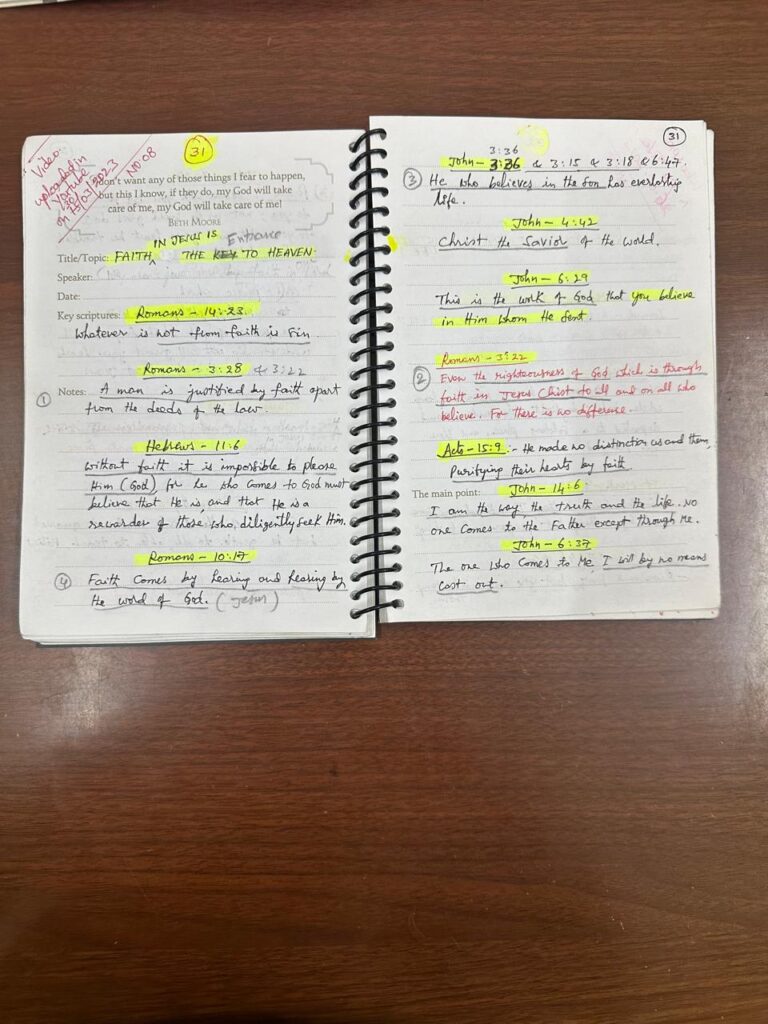 31
Video
uploaded in
Youtube
NO 08
I don't want any of those things I fear to happen,
but this I know, if they do, my God will take
care of me, my God will take care of me!
BETH MOORE
IN JESUS IS Entrance
Title/Topic: FAITH THE KEY TO HEAVEN
Speaker:
Date:
Key scriptures: Romans - 14:23
Whatever is not from faith is sin
Romans - 3:28 & 3:22
① Notes: A man is justified by faith apart
from the deeds of the law.
Hebrews - 11:6
Without faith it is impossible to please
Him (God), for he who comes to God must
believe that He is, and that He is a
rewarder of those who diligently seek Him.
Romans - 10:17
④ Faith comes by hearing and hearing by
the word of God. (Jesus)
31
3:36
John - 3:36 & 3:15 & 3:18 & 6:47.
③ He who believes in the Son has everlasting
life.
John - 4:42
Christ the Savior of the world.
John - 6:29
This is the work of God that you believe
in Him whom He sent.
Romans - 3:22
② Even the righteousness of God which is through
faith in Jesus Christ to all and on all who
believe. For there is no difference.
Acts - 15:9 :- He made no distinction us and them,
Purifying their hearts by faith.
The main point: John - 14:6
I am the way the truth and the life. No
one comes to the Father except through Me.
John - 6:37
The one who comes to Me I will by no means
cast out.